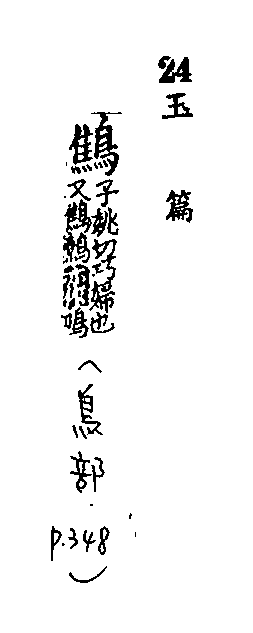 24 玉篇
鷦 子姚切巧婦也
又鷦
(鳥部 p.348)